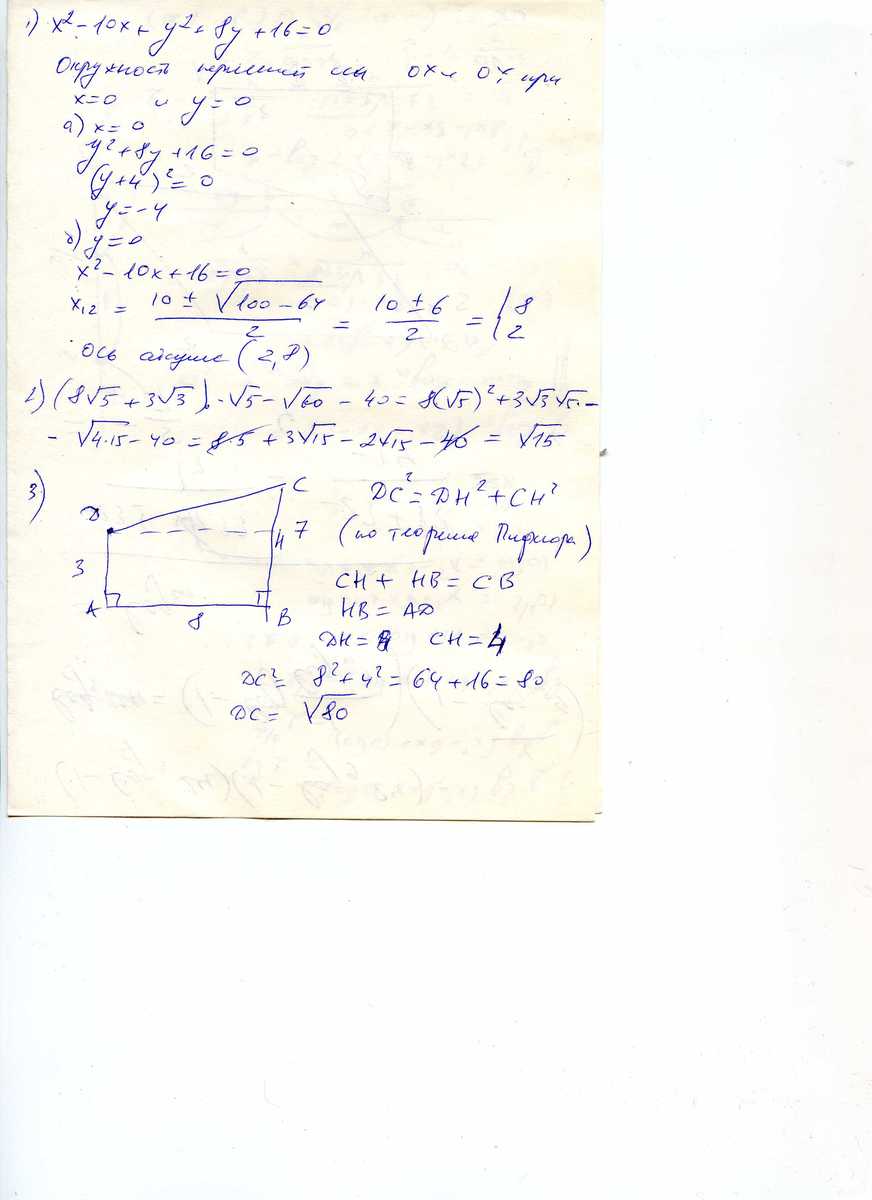 1) x² - 10x + y² + 8y + 16 = 0
Окружность оси OX и OY при
x = 0 и y = 0
а) x = 0
y² + 8y + 16 = 0
(y + 4)² = 0
y = -4
б) y = 0
x² - 10x + 16 = 0
x₁,₂ = (10 ± √(100 - 64))/2 = (10 ± 6)/2 = { 8 2
Ось абсцисс (2, 8)
2) (8√5 + 3√3) · √5 - √60 - 40 = 8(√5)² + 3√3√5 -
- √4·15 - 40 = 8·5 + 3√15 - 2√15 - 40 = √15
3) DC² = DH² + CH²
(по теореме Пифагора)
CH + HB = CB
HB = AD
DH = 8 CH = 4
DC² = 8² + 4² = 64 + 16 = 80
DC = √80
C
D
H 7
3
A
B
8